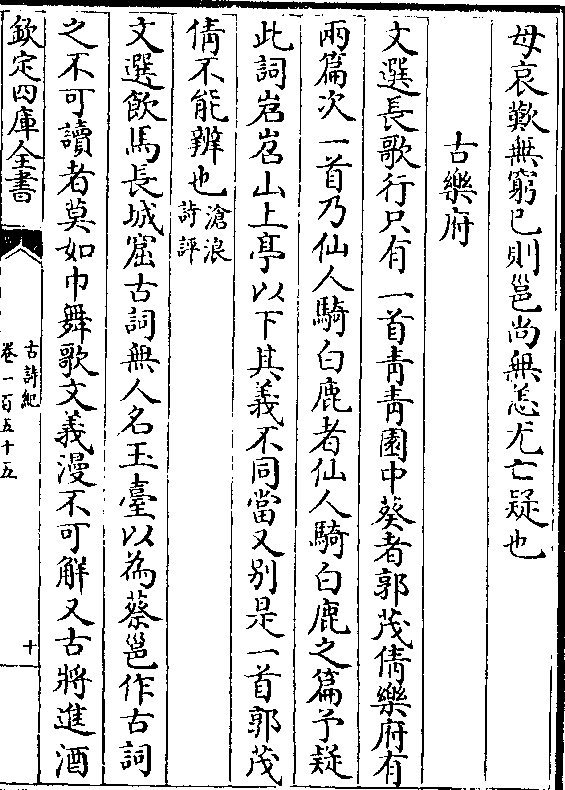 母哀歎無窮已則邕尚無恙尤亡疑也
古樂府
文選長歌行只有一首青青園中葵者郭茂倩樂府有
兩篇次一首乃仙人騎白鹿者仙人騎白鹿之篇予疑
此詞岧岧山上亭以下其義不同當又别是一首郭茂
倩不能辨也滄浪詩評
文選飲馬長城窟古詞無人名玉臺以為蔡邕作古詞
之不可讀者莫如巾舞歌文義漫不可解又古將進酒
欽定四庫全書
古詩紀
卷一百五十五
十